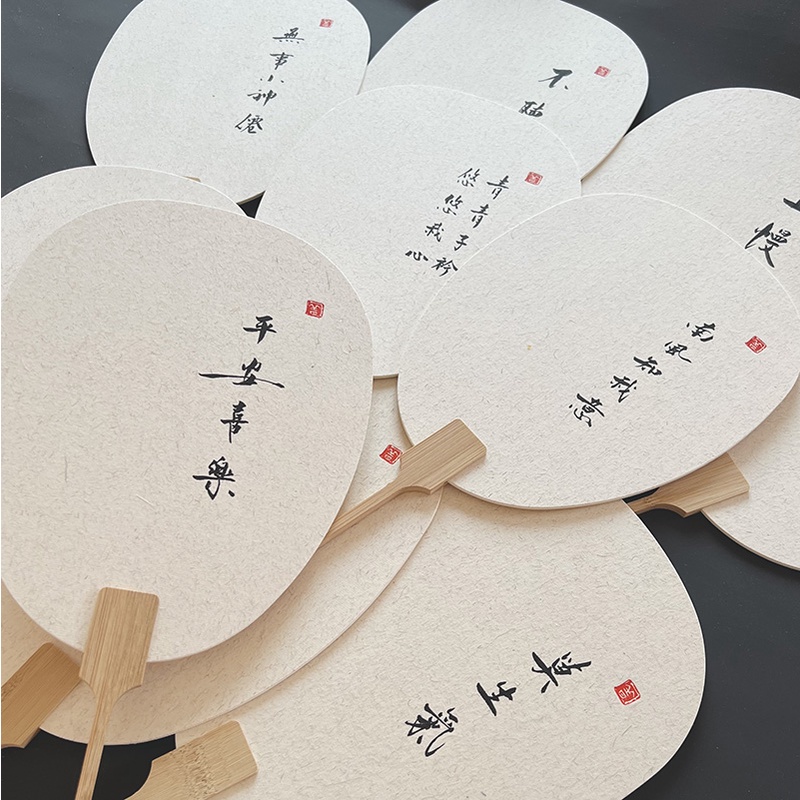 無事小神僊
不
青青子衿
悠悠我心
慢
南風知我意
平安喜樂
莫生氣